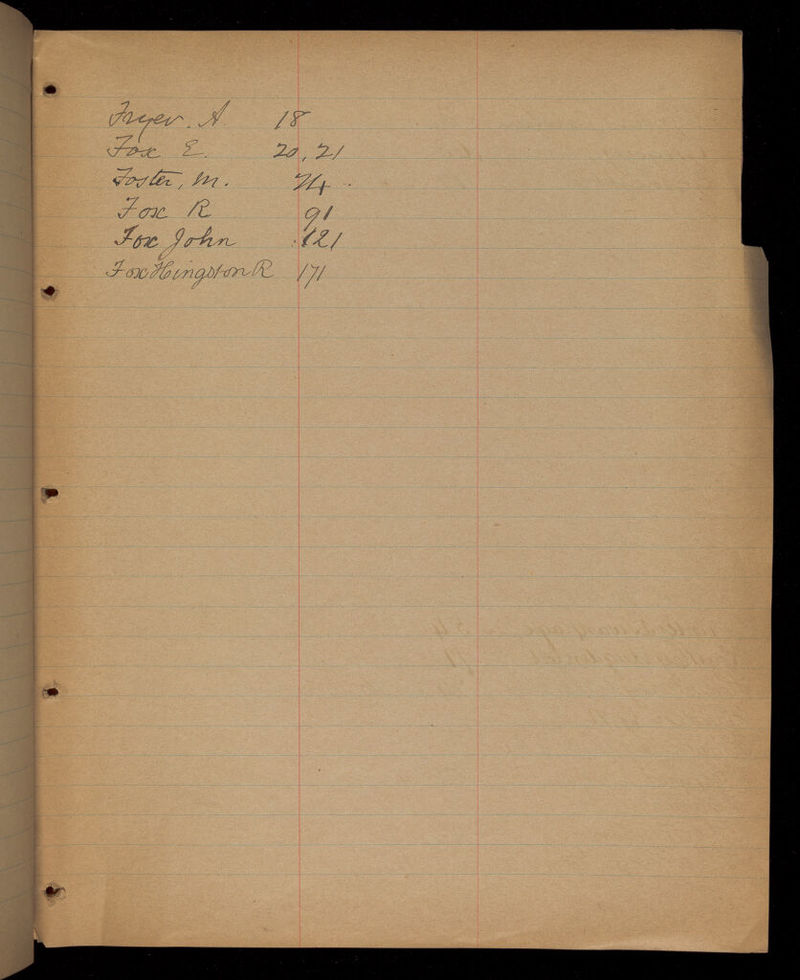 Fryer. A. 18
Fox E. 20, 21
Foster, M. 74.
Fox R 91
Fox John 121
Fox Hingston R 171